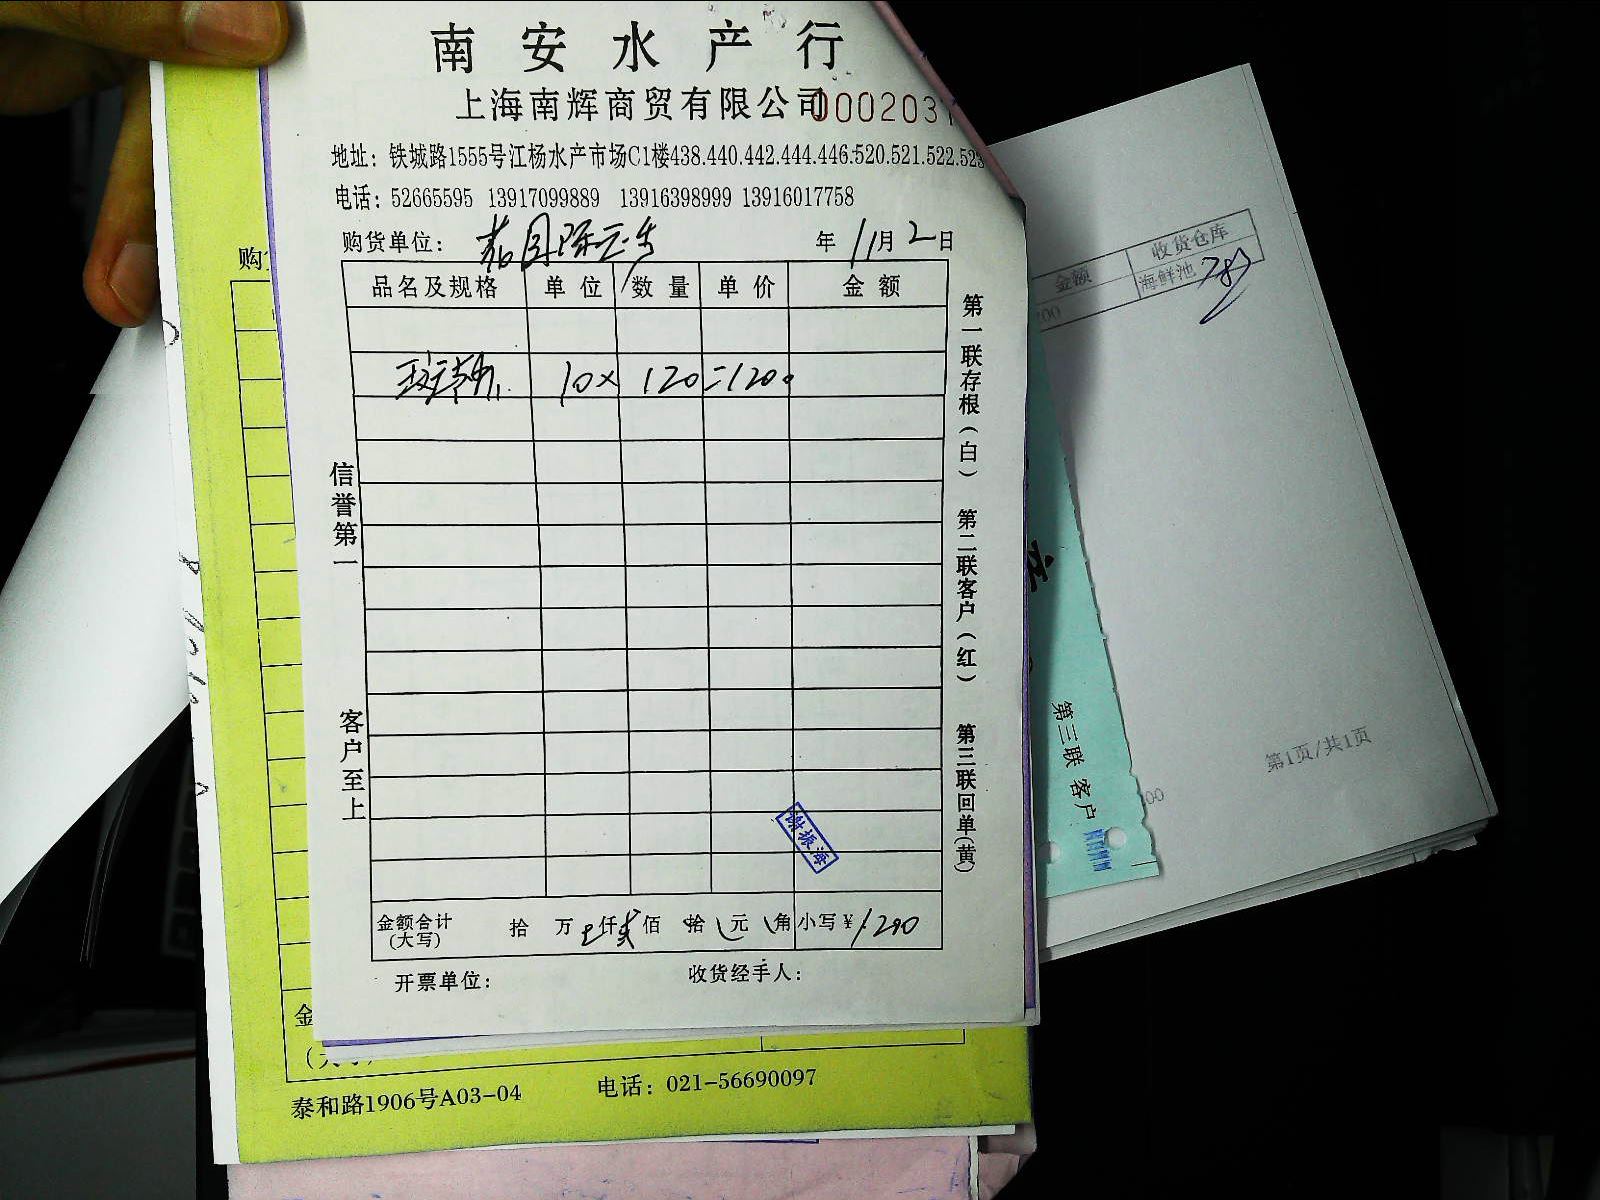 南安水产行
上海南辉商贸有限公司 000203
地址：铁城路1555号江杨水产市场C1楼438.440.442.444.446.520.521.522.523
电话：52665595 13917099889 13916398999 13916017758
购货单位： 年 11月 2日
品名及规格 单位 数量 单价 金额
10× 120=1200
信誉第一
客户至上
第一联存根（白） 第二联客户（红） 第三联回单（黄）
谢振海
金额合计（大写） 拾 万 仟 佰 拾 元 角 小写￥1200
开票单位： 收货经手人：
购
金
泰和路1906号A03-04 电话：021-56690097
金额 收货仓库
海鲜池
第三联 客户
第1页/共1页